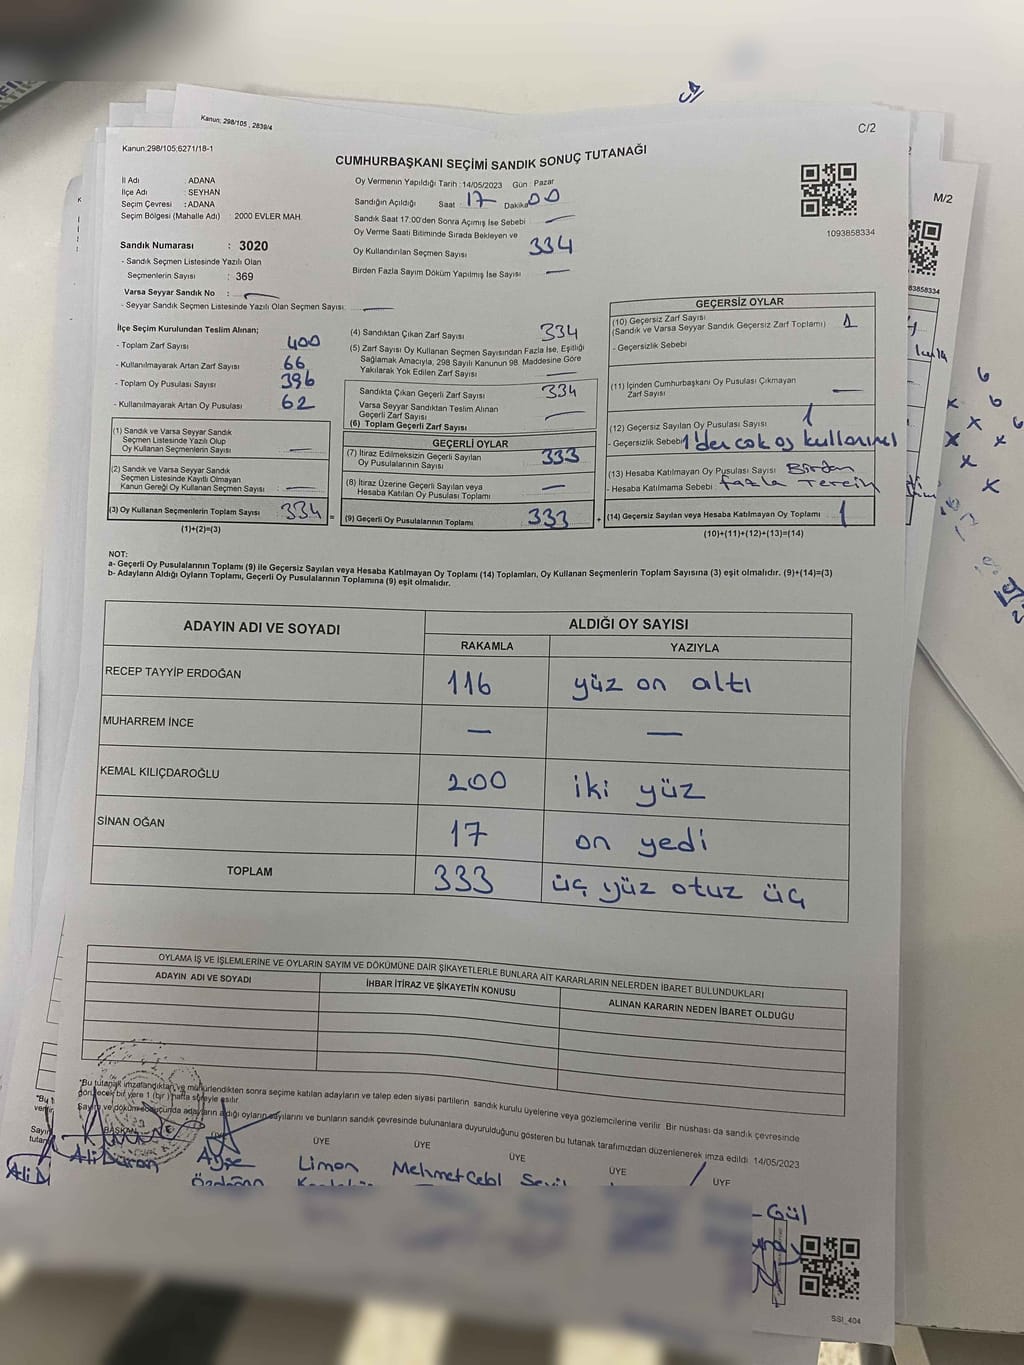 Kanun; 298/105 , 2839/4
C/2
Kanun;298/105;6271/18-1
CUMHURBAŞKANI SEÇİMİ SANDIK SONUÇ TUTANAĞI
M/2
İl Adı : ADANA
İlçe Adı : SEYHAN
Seçim Çevresi : ADANA
Seçim Bölgesi (Mahalle Adı) : 2000 EVLER MAH.
Sandık Numarası : 3020
- Sandık Seçmen Listesinde Yazılı Olan
Seçmenlerin Sayısı : 369
Varsa Seyyar Sandık No : —
- Seyyar Sandık Seçmen Listesinde Yazılı Olan Seçmen Sayısı: —
Oy Vermenin Yapıldığı Tarih :14/05/2023 Gün : Pazar
Sandığın Açıldığı Saat : 17 Dakika 00
Sandık Saat 17:00'den Sonra Açımış İse Sebebi —
Oy Verme Saati Bitiminde Sırada Bekleyen ve
Oy Kullandırılan Seçmen Sayısı 334
Birden Fazla Sayım Döküm Yapılmış İse Sayısı —
1093858334
83858334
İlçe Seçim Kurulundan Teslim Alınan;
- Toplam Zarf Sayısı 400
- Kullanılmayarak Artan Zarf Sayısı 66
- Toplam Oy Pusulası Sayısı 396
- Kullanılmayarak Artan Oy Pusulası 62
(1) Sandık ve Varsa Seyyar Sandık
Seçmen Listesinde Yazılı Olup
Oy Kullanan Seçmenlerin Sayısı —
(2) Sandık ve Varsa Seyyar Sandık
Seçmen Listesinde Kayıtlı Olmayan
Kanun Gereği Oy Kullanan Seçmen Sayısı —
(3) Oy Kullanan Seçmenlerin Toplam Sayısı 334 =
(1)+(2)=(3)
(4) Sandıktan Çıkan Zarf Sayısı 334
(5) Zarf Sayısı Oy Kullanan Seçmen Sayısından Fazla İse, Eşitliği
Sağlamak Amacıyla, 298 Sayılı Kanunun 98. Maddesine Göre
Yakılarak Yok Edilen Zarf Sayısı —
Sandıkta Çıkan Geçerli Zarf Sayısı 334
Varsa Seyyar Sandıktan Teslim Alınan
Geçerli Zarf Sayısı —
(6) Toplam Geçerli Zarf Sayısı
GEÇERLİ OYLAR
(7) İtiraz Edilmeksizin Geçerli Sayılan
Oy Pusulalarının Sayısı 333
(8) İtiraz Üzerine Geçerli Sayılan veya
Hesaba Katılan Oy Pusulası Toplamı —
(9) Geçerli Oy Pusulalarının Toplamı 333 +
GEÇERSİZ OYLAR
(10) Geçersiz Zarf Sayısı
(Sandık ve Varsa Seyyar Sandık Geçersiz Zarf Toplamı) 1
- Geçersizlik Sebebi
(11) İçinden Cumhurbaşkanı Oy Pusulası Çıkmayan
Zarf Sayısı —
(12) Geçersiz Sayılan Oy Pusulası Sayısı 1
- Geçersizlik Sebebi 1'den çok oy kullanımı
(13) Hesaba Katılmayan Oy Pusulası Sayısı Birden
- Hesaba Katılmama Sebebi fazla Tercih
(14) Geçersiz Sayılan veya Hesaba Katılmayan Oy Toplamı 1
(10)+(11)+(12)+(13)=(14)
NOT:
a- Geçerli Oy Pusulalarının Toplamı (9) ile Geçersiz Sayılan veya Hesaba Katılmayan Oy Toplamı (14) Toplamları, Oy Kullanan Seçmenlerin Toplam Sayısına (3) eşit olmalıdır. (9)+(14)=(3)
b- Adayların Aldığı Oyların Toplamı, Geçerli Oy Pusulalarının Toplamına (9) eşit olmalıdır.
ADAYIN ADI VE SOYADI
ALDIĞI OY SAYISI
RAKAMLA YAZIYLA
RECEP TAYYİP ERDOĞAN 116 yüz on altı
MUHARREM İNCE — —
KEMAL KILIÇDAROĞLU 200 iki yüz
SİNAN OĞAN 17 on yedi
TOPLAM 333 üç yüz otuz üç
OYLAMA İŞ VE İŞLEMLERİNE VE OYLARIN SAYIM VE DÖKÜMÜNE DAİR ŞİKAYETLERLE BUNLARA AİT KARARLARIN NELERDEN İBARET BULUNDUKLARI
ADAYIN ADI VE SOYADI İHBAR İTİRAZ VE ŞİKAYETİN KONUSU ALINAN KARARIN NEDEN İBARET OLDUĞU
"Bu tutanak imzalandıktan ve mühürlendikten sonra seçime katılan adayların ve talep eden siyasi partilerin sandık kurulu üyelerine veya gözlemcilerine verilir. Bir nüshası da sandık çevresinde
görülecek bir yere 1 (bir) hafta süreyle asılır.
Sayım ve döküm sonucunda adayların aldığı oyların sayılarını ve bunların sandık çevresinde bulunanlara duyurulduğunu gösteren bu tutanak tarafımızdan düzenlenerek imza edildi. 14/05/2023
BAŞKAN ÜYE ÜYE ÜYE ÜYE ÜYE
Ali Duran Ayşe Limon Mehmet Cebl
Özdoğan
Gül
SSI_404